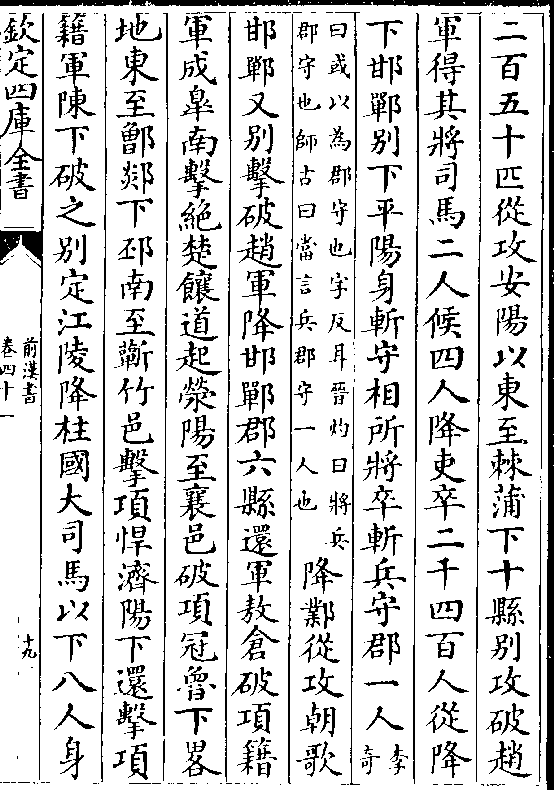 二百五十匹從攻安陽以東至棘蒲下十縣别攻破趙
軍得其將司馬二人候四人降吏卒二千四百人從降
下邯鄲别下平陽身斬守相所將卒斬兵守郡一人李竒
曰或以為郡守也字反耳晉灼曰將兵
郡守也師古曰當言兵郡守一人也
降鄴從攻朝歌
邯鄲又别擊破趙軍降邯鄲郡六縣還軍敖倉破項籍
軍成臯南擊絶楚饟道起滎陽至襄邑破項冠魯下畧
地東至鄫郯下邳南至蘄竹邑擊項悍濟陽下還擊項
籍軍陳下破之别定江陵降柱國大司馬以下八人身
欽定四庫全書
前漢書
卷四十一
十九